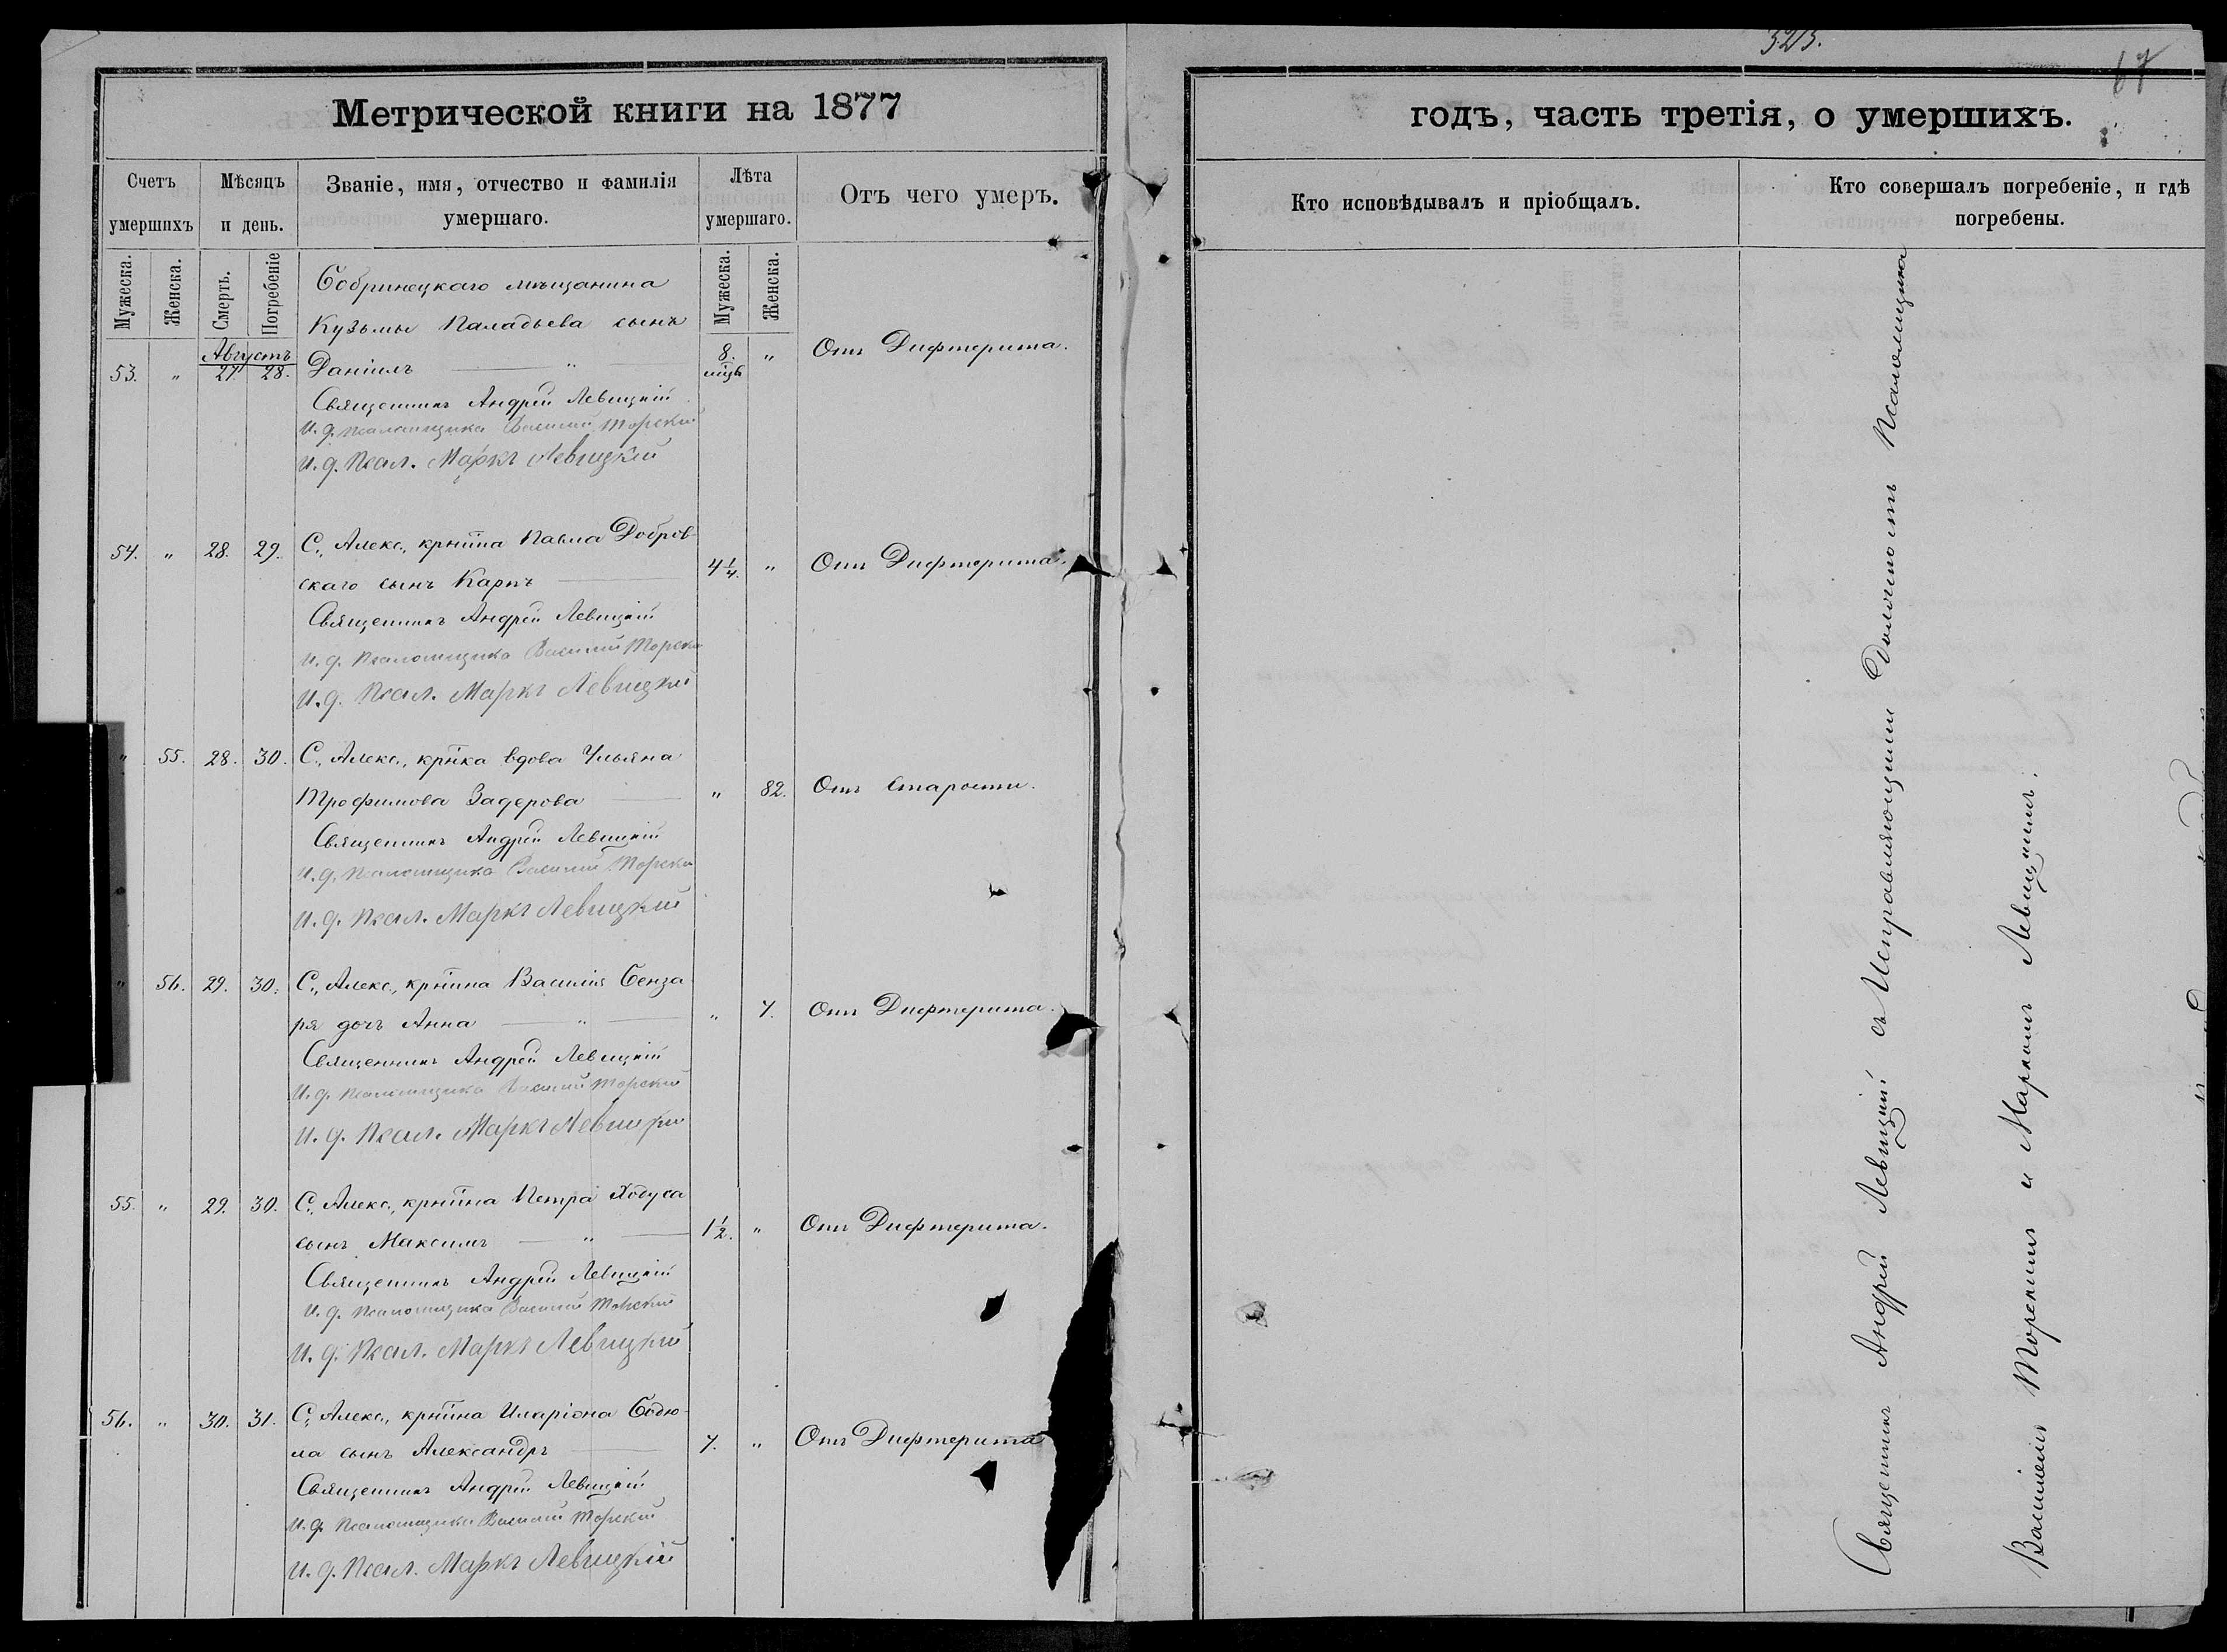 323.
67
Метрической книги на 1877
годъ, часть третія, о умершихъ.
Счетъ умершихъ
Мѣсяцъ и день.
Званіе, имя, отчество и фамилія умершаго.
Лѣта умершаго.
Отъ чего умеръ.
Кто исповѣдывалъ и пріобщалъ.
Кто совершалъ погребеніе, и гдѣ погребены.
Мужеска.
Женска.
Смерть.
Погребеніе
Мужеска.
Женска.
Бобринецкаго мѣщанина
Кузьмы Паладьева сынъ
Августъ
53. " 27. 28. Даніилъ " 8. мцъ " Отъ Дифтерита.
Священникъ Андрей Левицкій
И. д. псаломщика Василий Торский
И. д. Псал. Маркъ Левицкий
54. " 28. 29. С., Алекс., крнина Павла Добров
скаго сынъ Карпъ 4 1/4. " Отъ Дифтерита.
Священникъ Андрей Левицкій
И. д. Псаломщика Василий Торский
И. д. Псал. Маркъ Левицкий
" 55. 28. 30. С., Алекс., крнка вдова Ульяна
Трофимова Задерова " 82. Отъ старости.
Священникъ Андрей Левицкій
И. д. Псаломщика Василий Торский
И. д. Псал. Маркъ Левицкий
" 56. 29. 30. С., Алекс., крнина Василія Бенза
ря дочь Анна " " 7. Отъ Дифтерита.
Священникъ Андрей Левицкій
И. д. Псаломщика Василий Торский
И. д. Псал. Маркъ Левицкий
55. " 29. 30. С., Алекс., крнина Петра Ходуса
сынъ Максимъ " 1 1/2. " Отъ Дифтерита.
Священникъ Андрей Левицкій
И. д. Псаломщика Василий Торский
И. д. Псал. Маркъ Левицкий
56. " 30. 31. С., Алекс., крнина Иларіона Бодю-
ла сынъ Александръ 7. " Отъ Дифтерита
Священникъ Андрей Левицкій
И. д. Псаломщика Василий Торский
И. д. Псал. Маркъ Левицкій
Священникъ Андрей Левицкій съ Исправляющими Должность Псаломщика
Василіемъ Торскимъ и Маркомъ Левицкимъ.